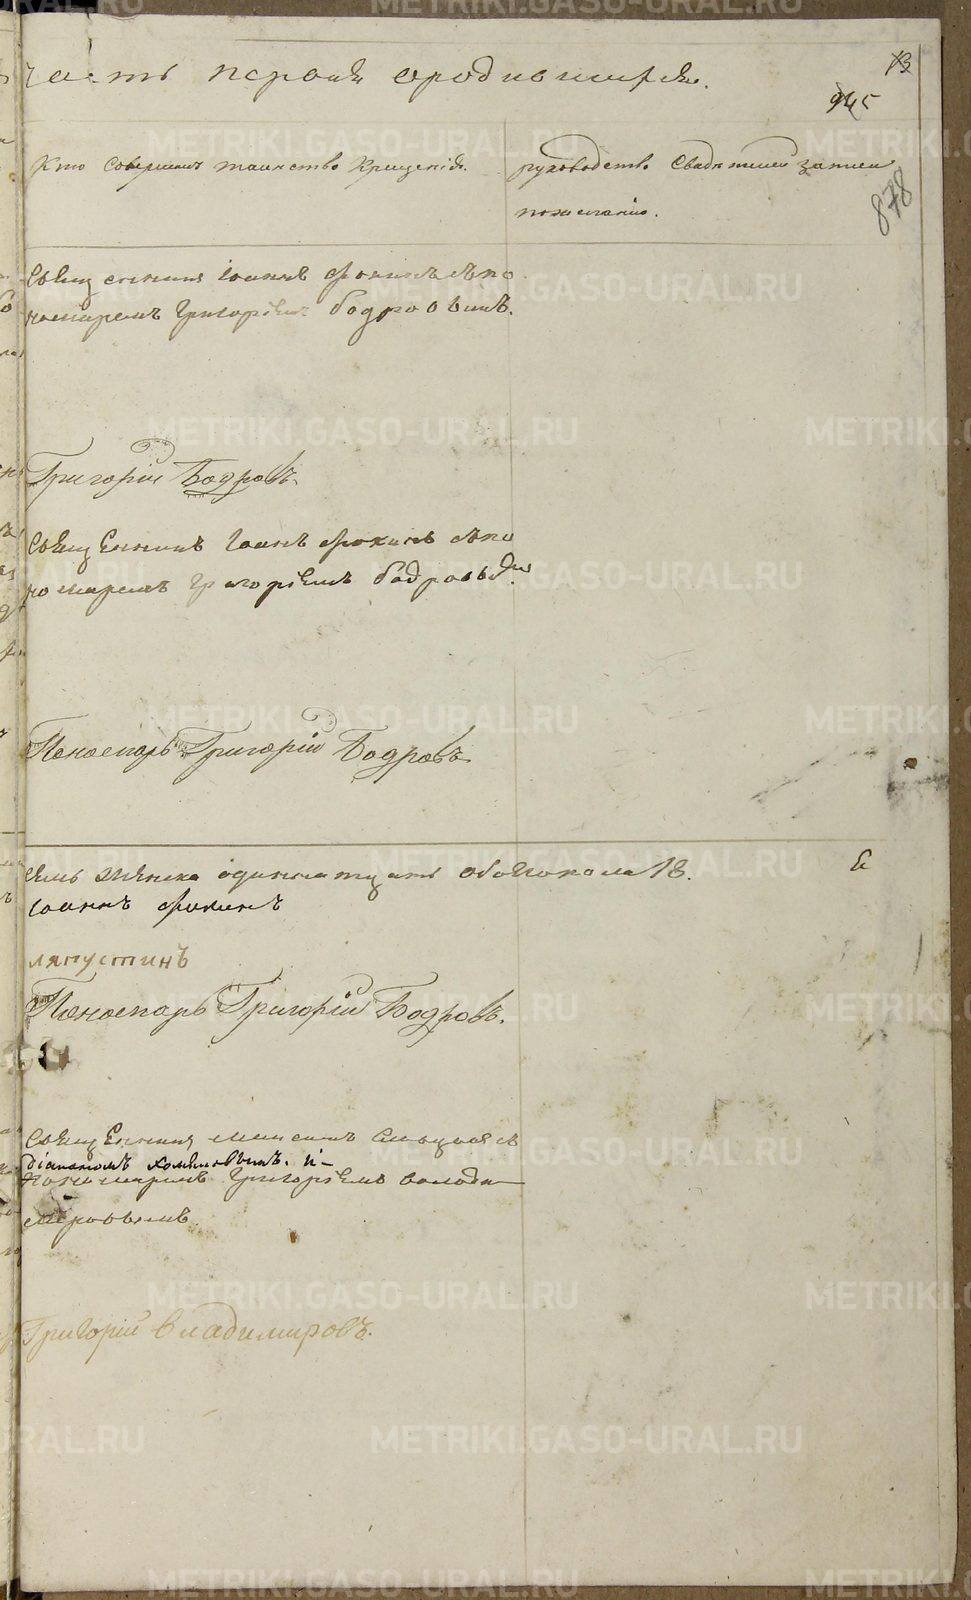 часть первая ородившихся.
13
945
878
Кто совершилъ таинство крещенія.
рукоподство свидѣтелей записи
пожеланію.
Священникъ Іоаннъ Фокинъ съ по
номаремъ Григоріемъ бодровымъ.
Григорій Бодровъ.
Священникъ Іоанъ Фокинъ съ по
номаремъ Григоріемъ бодровымъ
Пономарь Григорій Бодровъ
женска одиннатцать обоегопола 18.
Іоаннъ Фокинъ
ляпустинъ
Пономарь Григорій Бодровъ.
Священник съ
діакономъ и
пономаремъ Григоріемъ володи
меровымъ
Григорій владимировъ.
METRIKI.GASO-URAL.RU